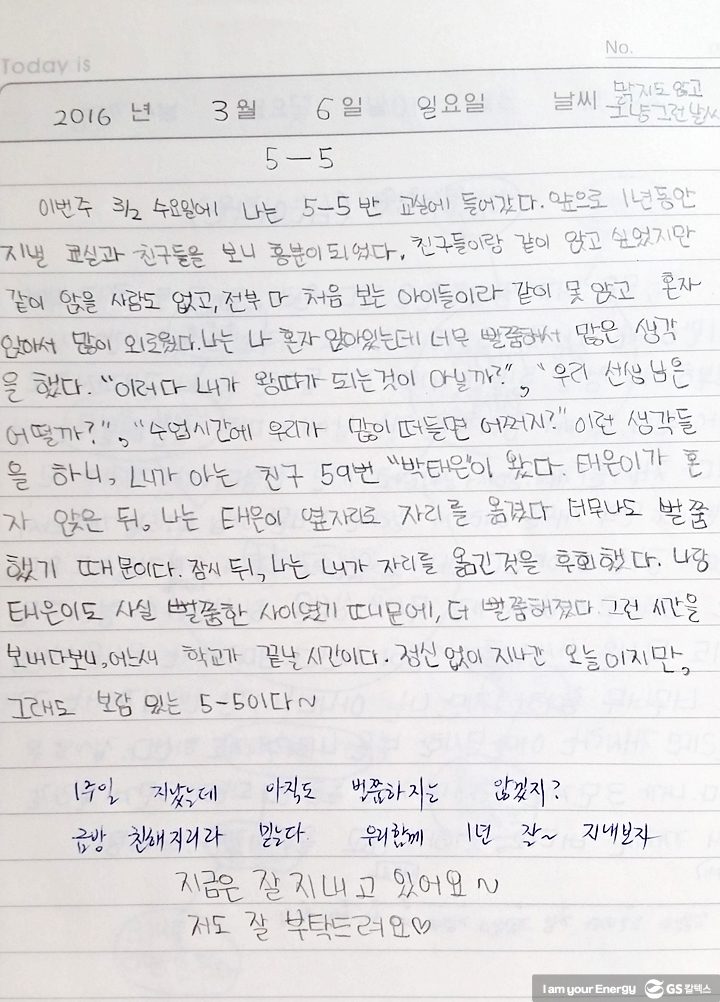 No.
Today is
2016 년 3월 6일 일요일 날씨 맑지도 않고
그냥 그런 날씨
5-5
이번주 3/2 수요일에 나는 5-5 반 교실에 들어갔다. 앞으로 1년동안
지낼 교실과 친구들을 보니 흥분이 되었다. 친구들이랑 같이 앉고 싶었지만
같이 앉을 사람도 없고, 전부 다 처음 보는 아이들이라 같이 못 앉고 혼자
앉아서 많이 외로웠다. 나는 나 혼자 앉아있는데 너무 뻘쭘해서 많은 생각
을 했다. "이러다 내가 왕따가 되는것이 아닐까?", "우리 선생님은
어떨까?", "수업시간에 우리가 많이 떠들면 어쩌지?" 이런 생각들
을 하니, 내가 아는 친구 59번 "박태은"이 왔다. 태은이가 혼
자 앉은 뒤, 나는 태은이 옆자리로 자리를 옮겼다 너무나도 뻘쭘
했기 때문이다. 잠시 뒤, 나는 내가 자리를 옮긴것을 후회했다. 나랑
태은이도 사실 뻘쭘한 사이였기 때문에, 더 뻘쭘해졌다. 그런 시간을
보내다보니, 어느새 학교가 끝날 시간이다. 정신 없이 지나간 오늘이지만,
그래도 보람 있는 5-5이다~
1주일 지났는데 아직도 뻘쭘하지는 않겠지?
금방 친해지리라 믿는다 우리함께 1년 잘~ 지내보자
지금은 잘 지내고 있어요~
저도 잘 부탁드려요♡
I am your Energy GS칼텍스